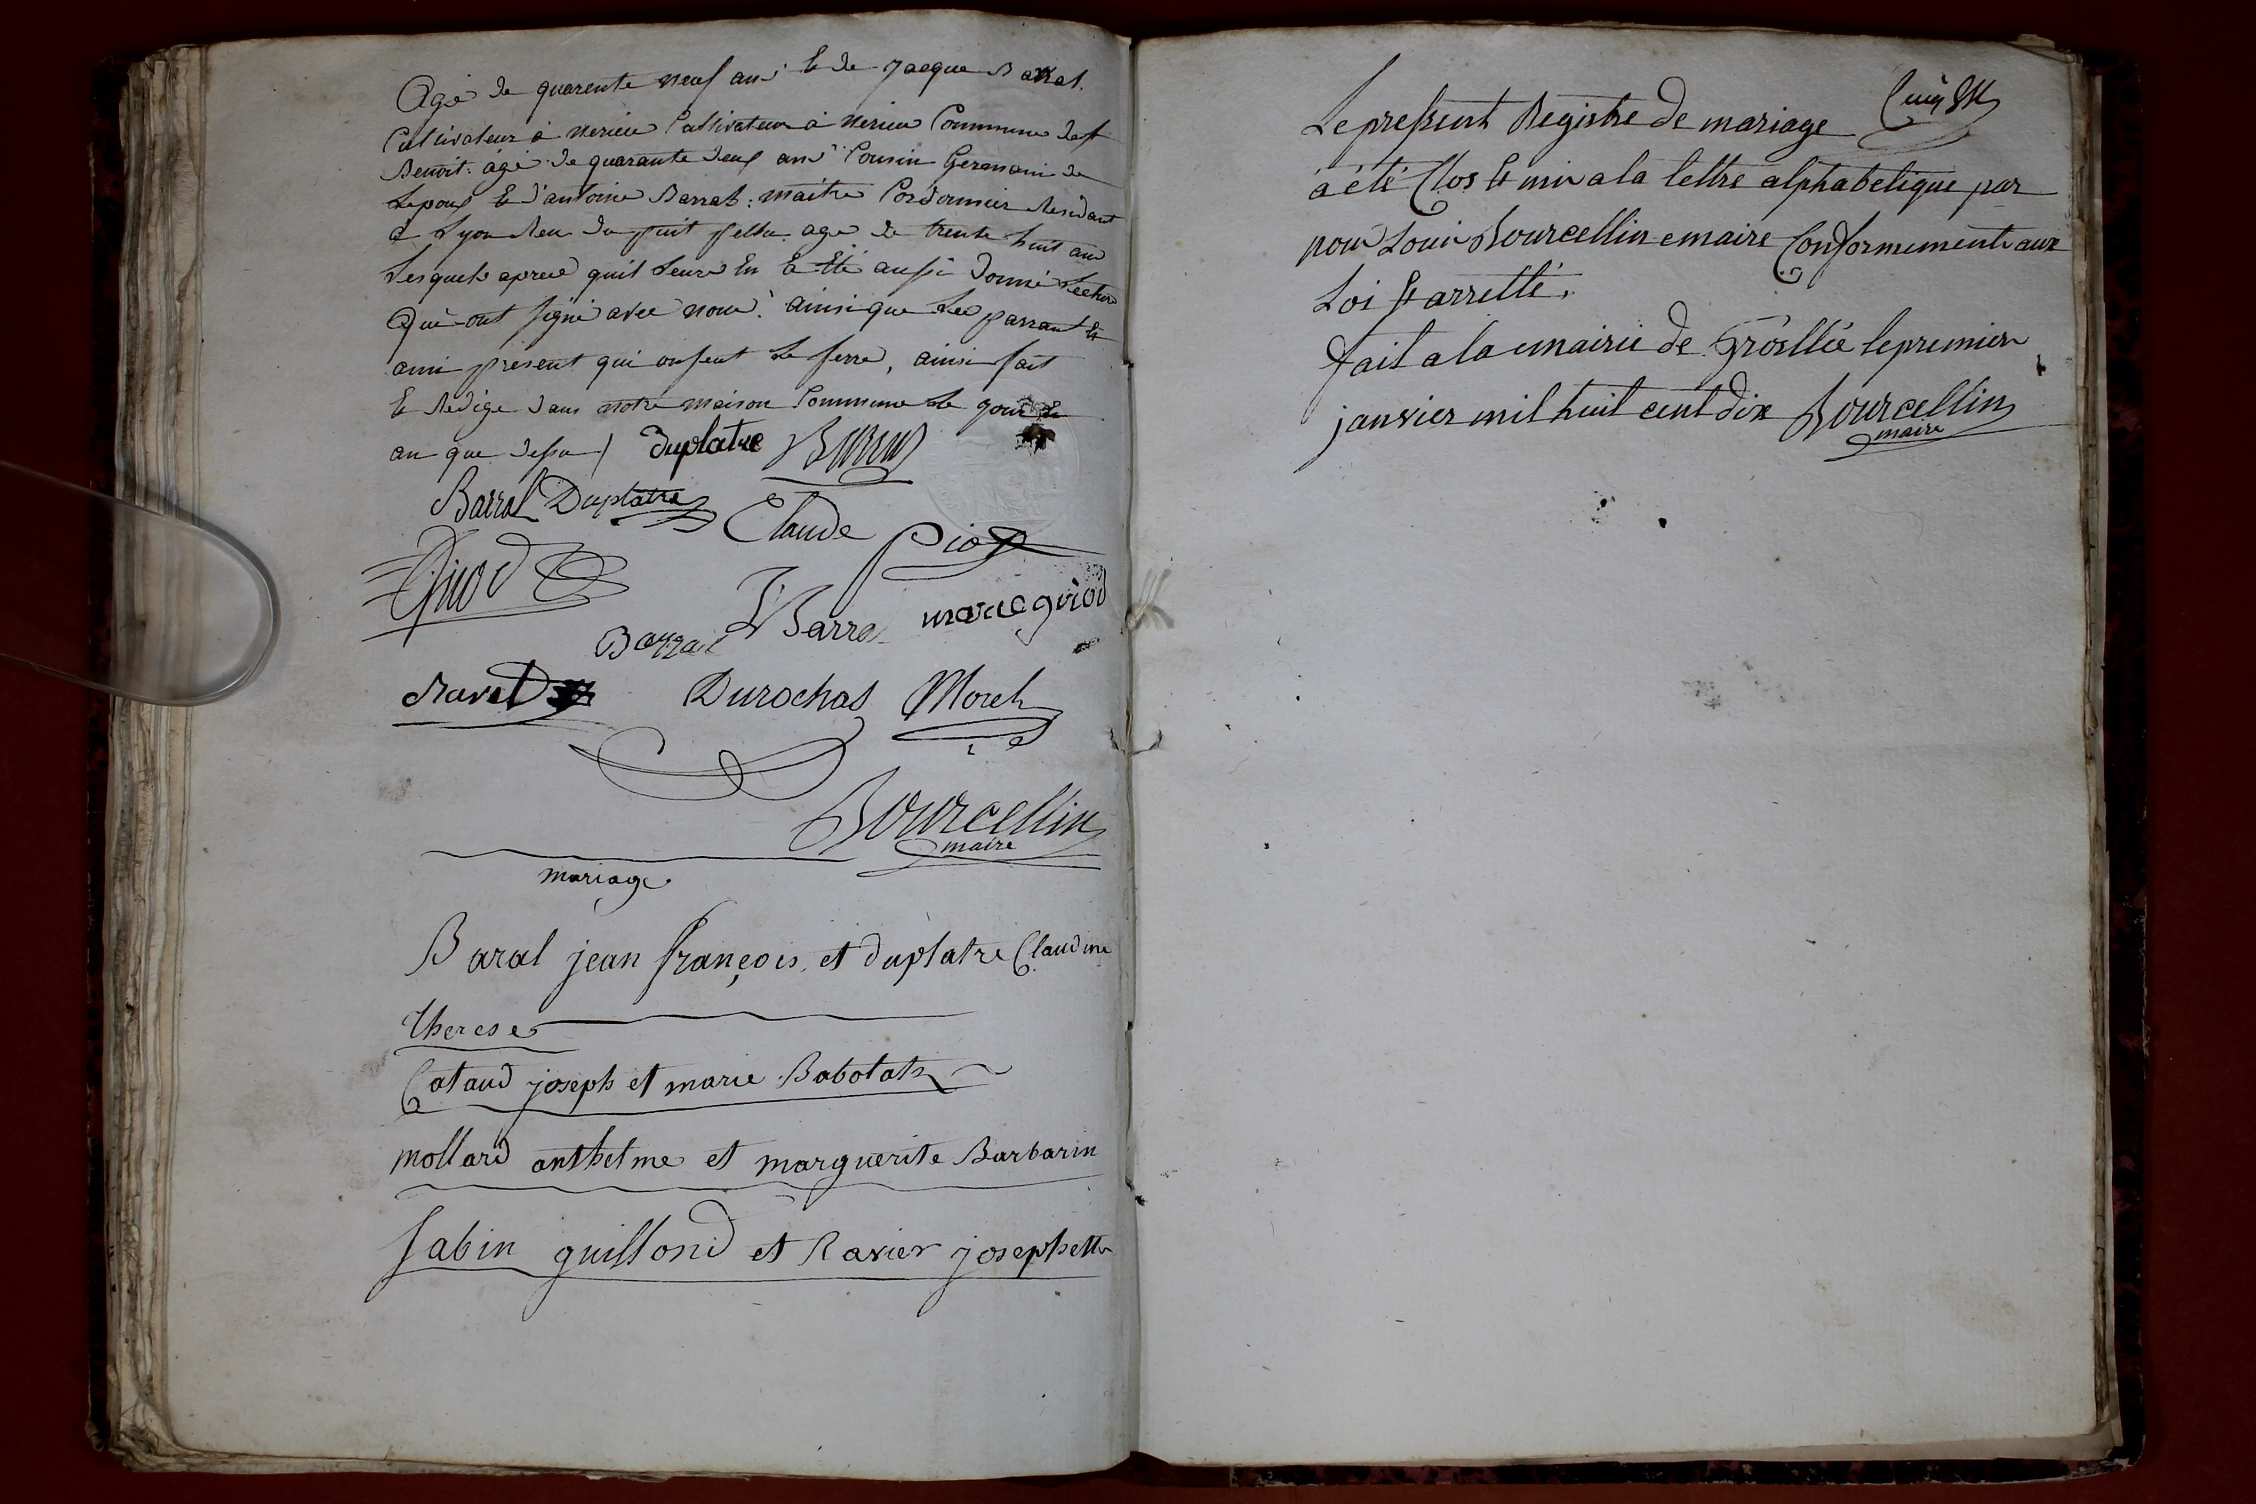 Agé de quarente neuf ans et de jacque Barral
Cultivateur à Merieu Cultivateur à Merieu Commune de St
Benoit: agé de quarante deux ans Cousin Germain de
Lepoux et d'antoine Barrat: maitre Cordonnier Residant
a Lyon Rue du puit pellu. age de trente huit ans
Lesquels apres quil Leurs En a Eté aussi donné Lecture
Qui ont signé avec nous: ainsi que Les parrant et
ami présent qui onseut Le ferre, ainsi fait
Et Redigé dans notre maison Commune Le jour et
an que dessu duplatre
Barral Duplatre Claude Piot
Barral Barral marie guiod
Ravet Durochat Morel
Bourcellin
maire
mariage
Baral jean françois, et duplatre Claudine
therese
Cataud joseph et marie Babolat
mollard anthelme et marguerite Barbarin
Sabin guillond et Ravier josephette
Le present Registre de mariage
a été Clos et mis a la lettre alphabetique par
nous Louis Bourcellin maire Conformement aux
Loi et arretté.
fait a la mairie de Grosllée le premier
janvier mil huit cent dix Bourcellin
maire